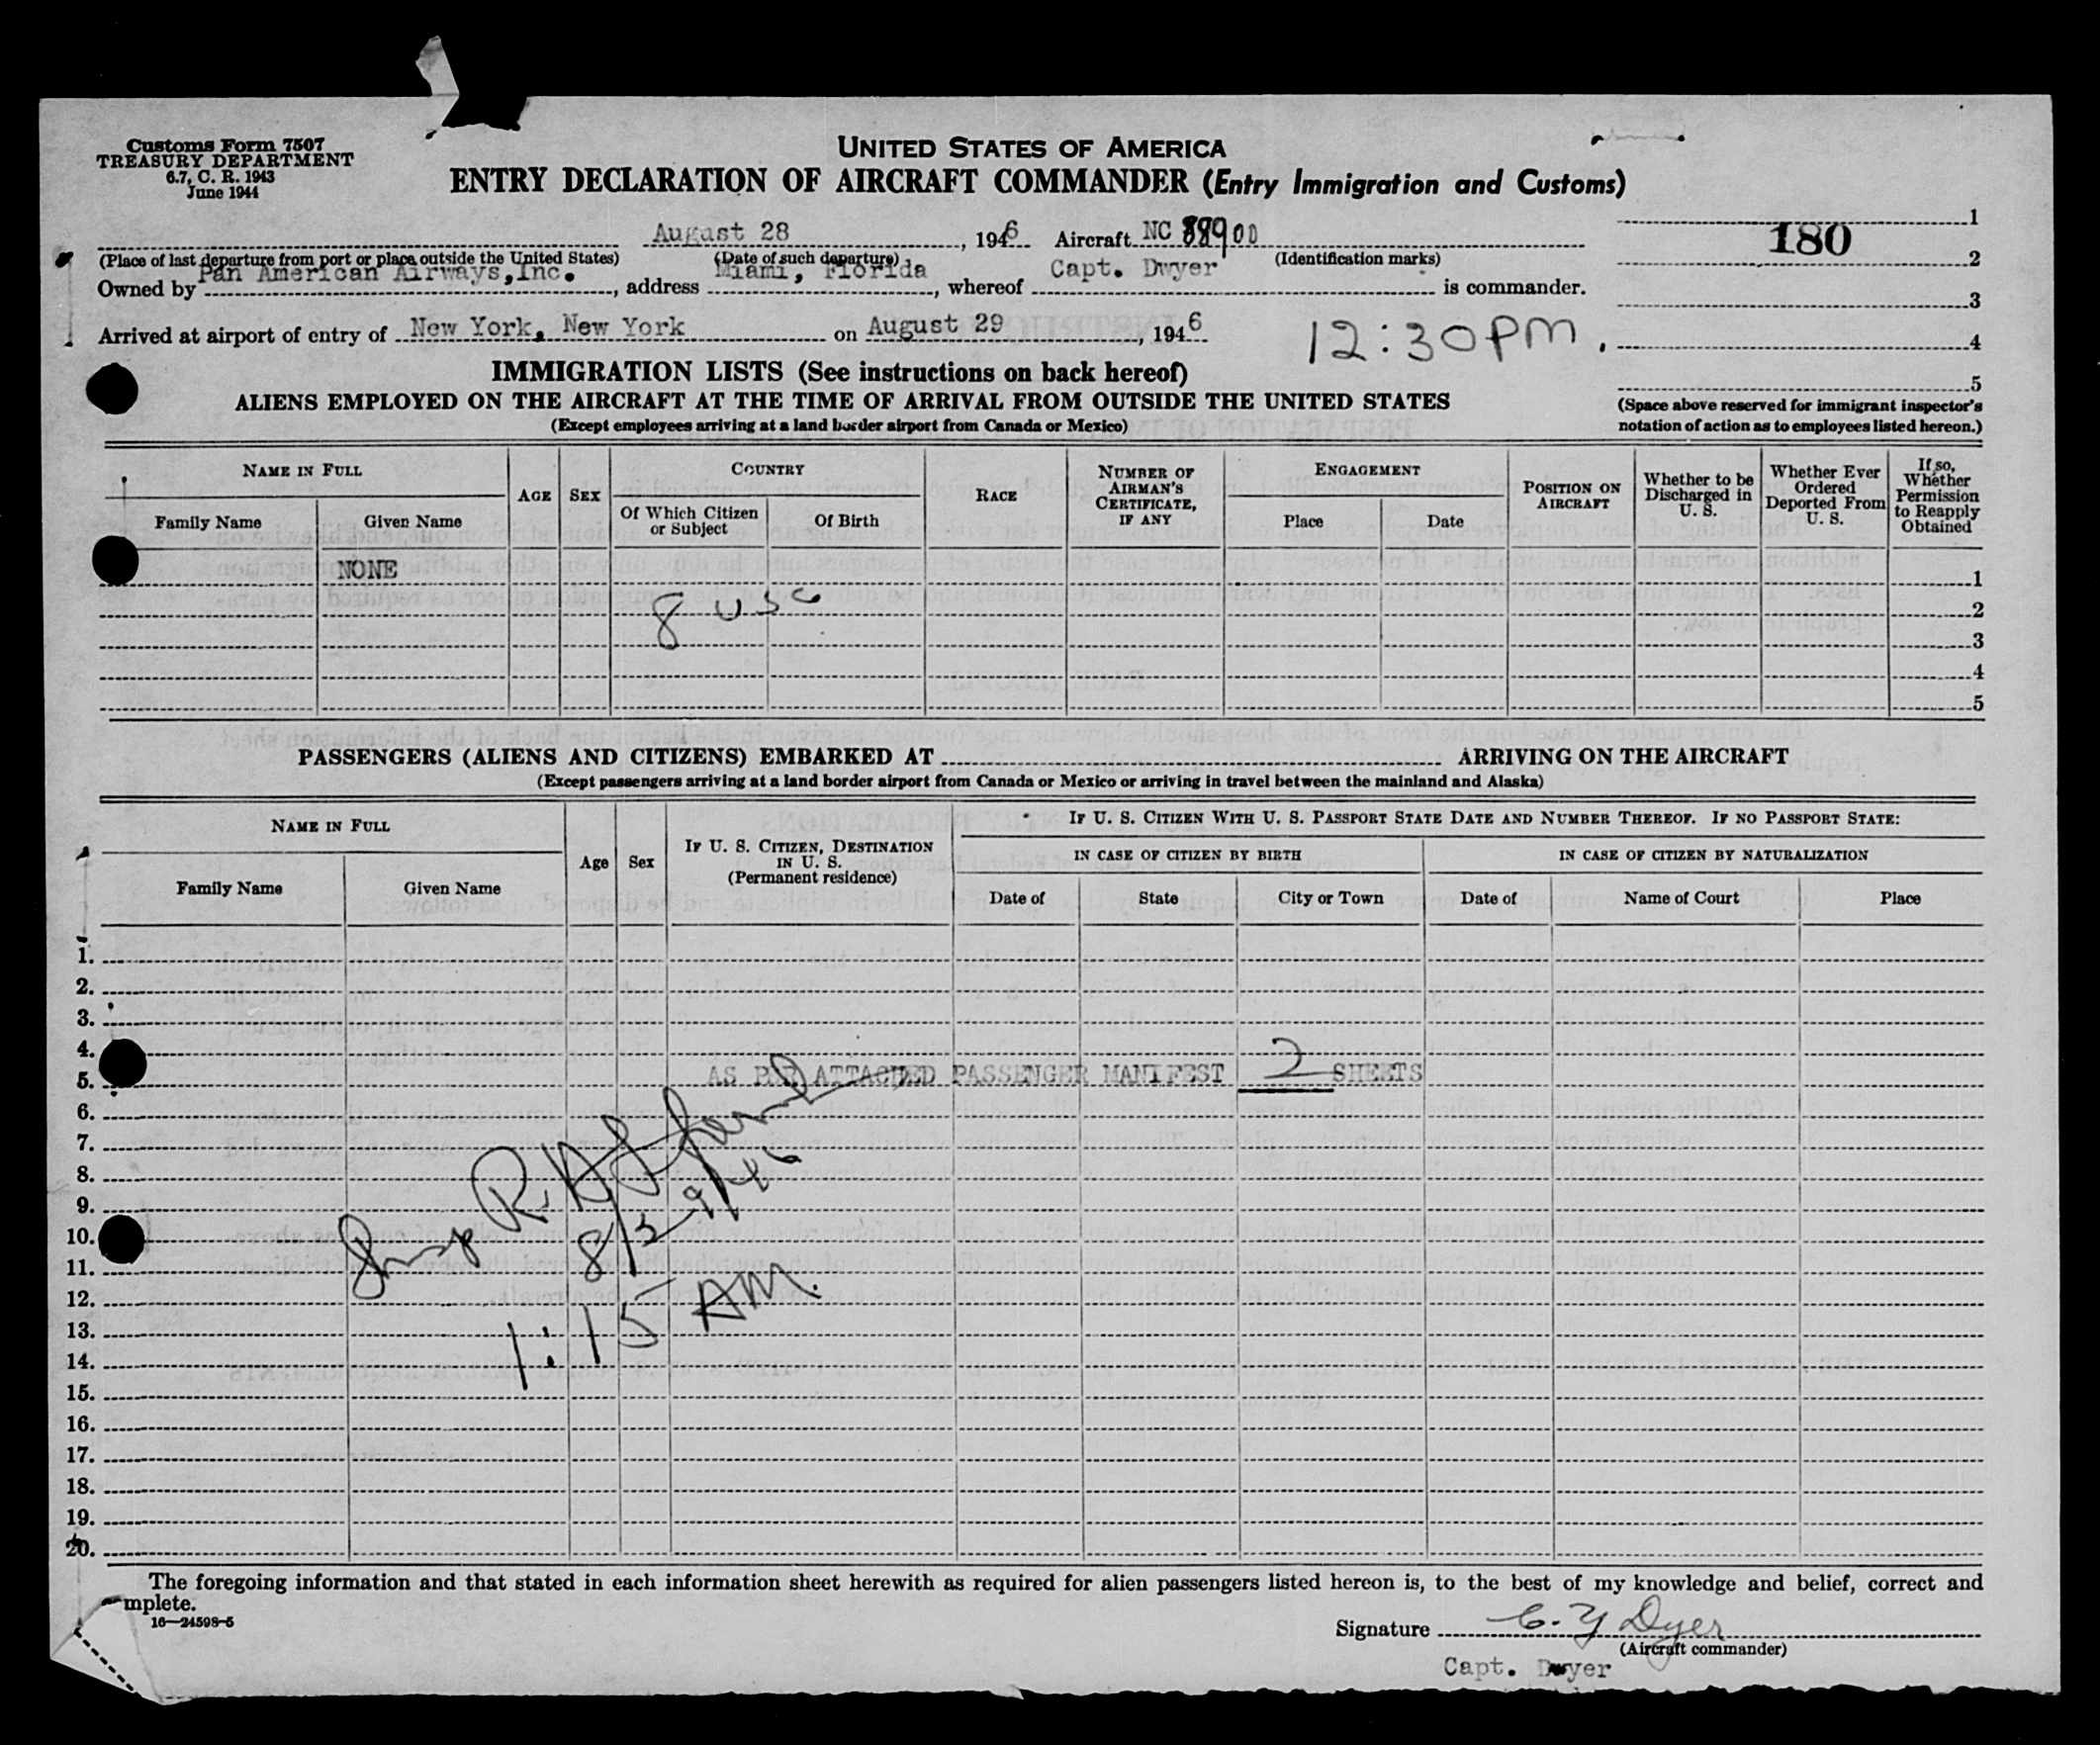 Customs Form 7507
TREASURY DEPARTMENT
6.7, C. R. 1943
June 1944
UNITED STATES OF AMERICA
ENTRY DECLARATION OF AIRCRAFT COMMANDER (Entry Immigration and Customs)
August 28, 1946 Aircraft NC 88900
(Place of last departure from port or place outside the United States) (Date of such departure) (Identification marks)
Owned by Pan American Airways, Inc., address Miami, Florida, whereof Capt. Dwyer is commander.
Arrived at airport of entry of New York, New York on August 29, 1946 12:30 PM.
1
180
2
3
4
5
(Space above reserved for immigrant inspector's
notation of action as to employees listed hereon.)
IMMIGRATION LISTS (See instructions on back hereof)
ALIENS EMPLOYED ON THE AIRCRAFT AT THE TIME OF ARRIVAL FROM OUTSIDE THE UNITED STATES
(Except employees arriving at a land border airport from Canada or Mexico)
NAME IN FULL
Family Name Given Name
AGE SEX
COUNTRY
Of Which Citizen
or Subject
Of Birth
RACE
NUMBER OF
AIRMAN'S
CERTIFICATE,
IF ANY
ENGAGEMENT
Place Date
POSITION ON
AIRCRAFT
Whether to be
Discharged in
U. S.
Whether Ever
Ordered
Deported From
U. S.
If so,
Whether
Permission
to Reapply
Obtained
NONE 1
8 USC 2
3
4
5
PASSENGERS (ALIENS AND CITIZENS) EMBARKED AT ARRIVING ON THE AIRCRAFT
(Except passengers arriving at a land border airport from Canada or Mexico or arriving in travel between the mainland and Alaska)
NAME IN FULL
Family Name Given Name
Age Sex
IF U. S. CITIZEN, DESTINATION
IN U. S.
(Permanent residence)
IF U. S. CITIZEN WITH U. S. PASSPORT STATE DATE AND NUMBER THEREOF. IF NO PASSPORT STATE:
IN CASE OF CITIZEN BY BIRTH IN CASE OF CITIZEN BY NATURALIZATION
Date of State City or Town Date of Name of Court Place
1.
2.
3.
4.
5. AS PER ATTACHED PASSENGER MANIFEST 2 SHEETS
6.
7.
8.
9.
10.
11.
12.
13.
14.
15.
16.
17.
18.
19.
20.
Insp R. H.
8/29/46
1:15 AM.
The foregoing information and that stated in each information sheet herewith as required for alien passengers listed hereon is, to the best of my knowledge and belief, correct and
mplete.
16—24598-5
Signature C. Y Dyer
(Aircraft commander)
Capt. Dwyer